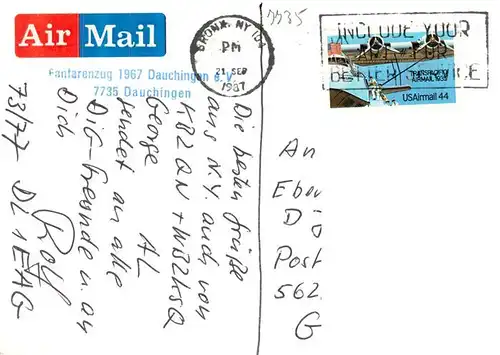 Air Mail
BRONX, NY 104
PM
21 SEP
1987
INCLUDE YOUR
TRANSPACIFIC
AIRMAIL 1935
USAirmail 44
Fanfarenzug 1967 Dauchingen e.V.
7735 Dauchingen
Die besten Grüße
aus N.Y. auch von
KB2QN + WB2KSQ
George AL
sendet an alle
DIG-Freunde u. an
Dich
Rolf
73/77 DL1EAG
An
Eber
Di
Post
562
G